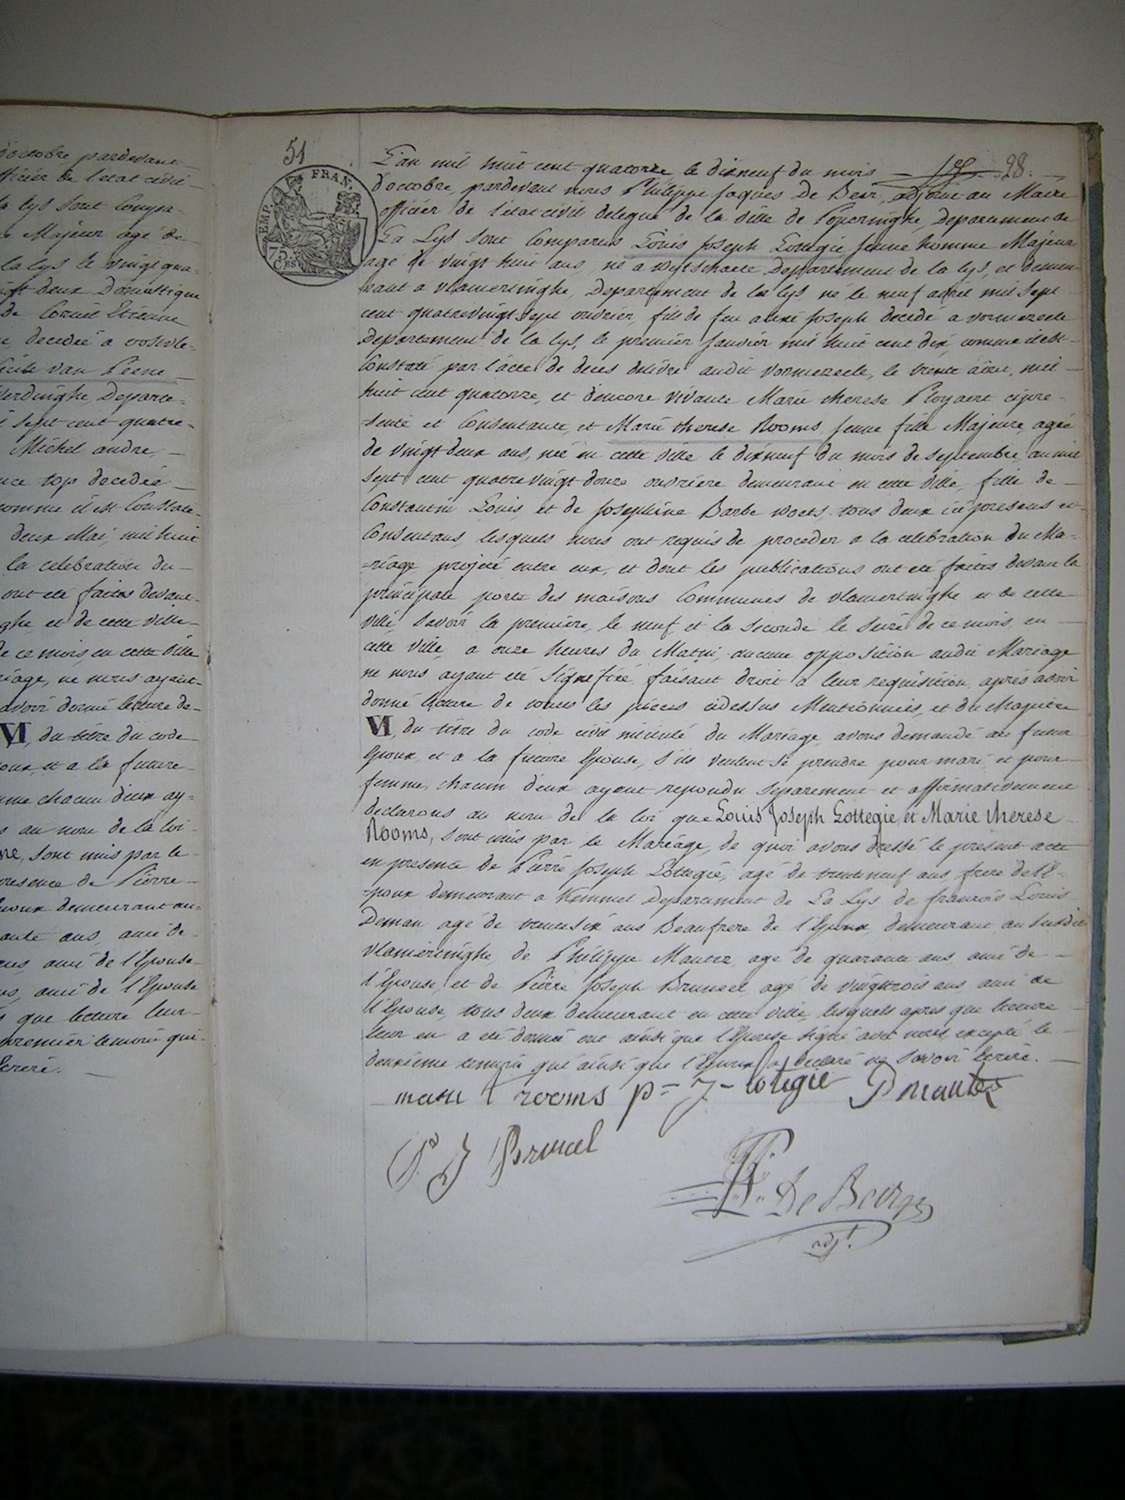 d'octobre pardevant
officier de l'etat civil
la lys sont Compa-
Majeur agé de
la lys le vingt qua-
vingt deux Domestique
de Corneil Etienne
decedé a
van Peene
Departe-
sept cent quatre-
Michel andre,
top decedée
comme il est Constaté
deux Mai, mil huit
la celebration du
ont eté faites devant
et de cette ville
de ce mois, en cette ville
mariage, ne nous ayant
avoir donné lecture de
VI, du titre du code
et a la future
femme chacun d'eux ay-
au nom de la loi
sont unis par le
presence de Pierre
demeurant au
ans, ami de
ami de l'Epouse
ami de l'Epouse
que lecture leur
premier temoin qui
Ecrire.
51
EMP. FRAN.
75
L'an mil huit cent quatorze le dixneuf du mois 28.
d'octobre, pardevant nous Philippe Jaques De Beir, adjoint au Maire
officier de l'etat civil delegué de la ville de Poperinghe, Departement de
La Lys sont Comparus Louis Joseph Lottegie Jeune homme Majeur
agé de vingt huit ans, né a wytschaete Departement de la lys, et demeu-
rant a vlamertinghe, Departement de la lys né le neuf avril mil sept
cent quatrevingt sept ouvrier, fils de feu Joseph decedé a vormezeele
Departement de la lys le premier Janvier mil huit cent dix, comme il est
Constaté par l'acte de deces delivré audit vormezeele, le trente mil
huit cent quatorze, et d'encore vivante Marie therese Ployaert cipre-
sente et Consentante, et Marie therese Rooms, Jeune fille Majeure, agée
de vingt deux ans, née en cette ville le dixneuf du mois de septembre an mil
sept cent quatre vingt douze ouvriere demeurant en cette ville, fille de
Constantin Louis, et de Josephine Barbe woets tous deux ici presens et
Consentans, lesquels nous ont requis de proceder a la celebration du Ma-
-riage projeté entre eux, et dont les publications ont eté faites devant la
principale porte des maisons Communes de vlamertinghe et de cette
ville, Savoir la premiere, le neuf, et la seconde le seize de ce mois, en
cette ville, a onze heures du Matin, aucune opposition audit Mariage
ne nous ayant eté signifiée, faisant droit a leur requisition, après avoir
donné lecture de toutes les pieces cidessus Mentionnées, et du Chapitre
VI, du titre du code civil intitulé du Mariage, avons demandé au futur
Epoux, et a la future Epouse, s'ils veulent se prendre pour mari, et pour
femme, chacun d'eux ayant repondu separement et affirmativement
declarons au nom de la loi que Louis Joseph Lottegie, et Marie therese
Rooms, sont unis par le Mariage, de quoi avons dressé le present acte
en presence de Pierre Joseph Lottegie, agé de trenteneuf ans, frere de l'E-
-poux demeurant a Kemmel Departement de La Lys de françois Louis
Deman agé de trentesix ans Beaufrere de l'Epoux, demeurant au susdit
vlamertinghe de Philippe Mautez, agé de quarante ans ami de
l'Epouse, et de Pierre Joseph Bruneel agé de vingttrois ans ami de
l'Epouse, tous deux demeurant en cette ville, lesquels apres que lecture
leur en a eté donnée ont ainsi que l'Epouse signé avec nous, excepté le
deuxieme temoin qui ainsi que l'Epoux a declaré ne savoir Ecrire.
marie t rooms p= j= lotigie P mautez
P. J Brunel
De Beir
adjt.